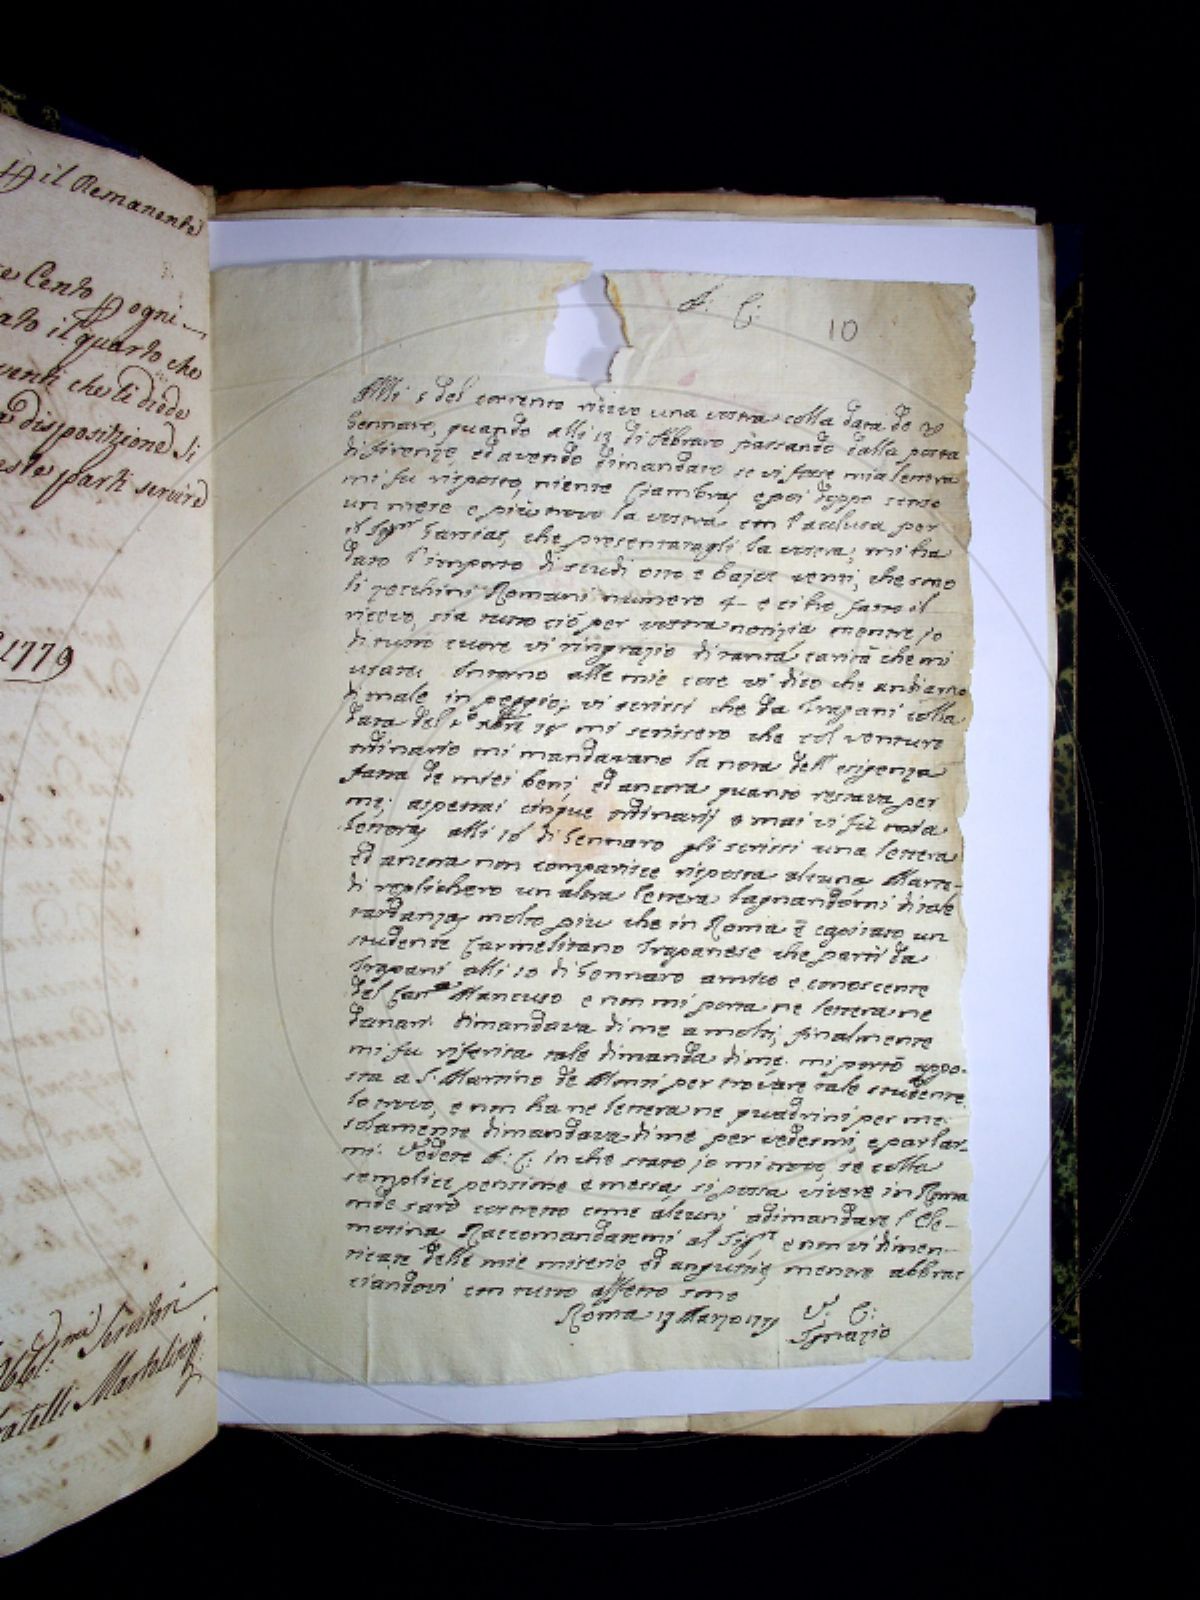 il Remanente
Cento ogni
il quarto che
che li diede
disposizione Si
parti servire
1779
Servitori
fratelli Martolini
F: C:
10
Alli 5 del corrente ricevo una vostra colla data de
Gennaro, quando alli 12 di febraro passando dalla posta
di firenze ed avendo dimandato se vi fosse mia lettera
mi fu risposto, niente e poi doppo
un mese e più trovo la vostra con l'acclusa per
il Sigr che presentatagli la vostra, mi ha
dato l'importo di scudi otto e bajoc venti, che sono
li zecchini Romani numero 4 e ci ho fatto il
ricevo, sia tutto ciò per vostra notizia mentre io
di tutto cuore vi ringrazio di tanta carità che mi
usate. Intorno alle mie cose vi dico che andiamo
di male in peggio; vi scrissi che da Trapani colla
data del mi scrissero che col venturo
ordinario mi mandavano la nota dell'esigenza
fatta de miei beni, ed ancora quanto restava per
me; aspettai cinque ordinarij e mai vi fù mia
lettera, alli 10 di Gennaro gli scrissi una lettera
ed ancora non comparisce risposta alcuna Marte-
di replichero un altra lettera lagnandomi di tale
tardanza, molto più che in Roma è capitato un
studente Carmelitano Trapanese che partì da
Trapani alli 10 di Gennaro amico e conoscente
del Mancuso e non mi porta ne lettera ne
danari. dimandava di me a molti, finalmente
mi fu riferita tale dimanda di me. mi portò appo-
sta a S. Martino de Monti per trovare tale studente.
lo trovo, e non ha ne lettera ne quadrini per me.
solamente dimandava di me per vedermi, e parlar-
mi. Vedete F: C: in che stato io mi trovo, se colla
semplice pensione e messa, si possa vivere in Roma
onde sarò costretto come alcuni adimandare l'Ele-
mosina. Raccomandatemi al Sigre e non vi dimen-
ticate delle mie miserie, ed angustie, mentre abbrac
ciandovi con tutto affetto sono
Roma 13 Marzo 1779 V: C:
Ignazio